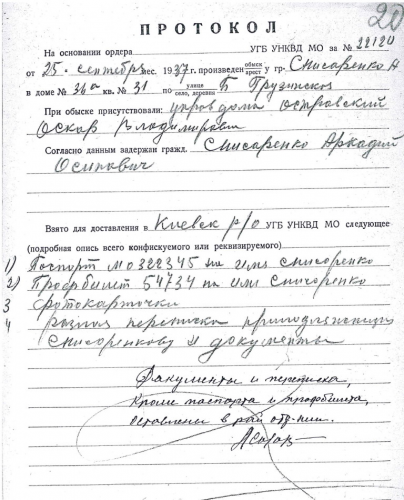 20
ПРОТОКОЛ
На основании ордера УГБ УНКВД МО за № 22120
от 25 сентября мес. 1937 г. произведен обыск арест у гр. Снисаренко А
в доме № 36а кв. № 31 по улице село, деревня Б Грузинской
При обыске присутствовали: управдома Островский
Оскар Владимирович
Согласно данным задержан гражд. Снисаренко Аркадий
Осипович
Взято для доставления в Киевск р/о УГБ УНКВД МО следующее
(подробная опись всего конфискуемого или реквизируемого)
1) Паспорт МО 322345 на имя Снисоренко
2) Профбилет 54734 на имя Снисоренко
3 Фотокарточки
4 разная переписка принадлежащая
Снисоренкову и документы
Документы и переписка,
кроме паспорта и профбилета,
оставлены в рай отд-нии.